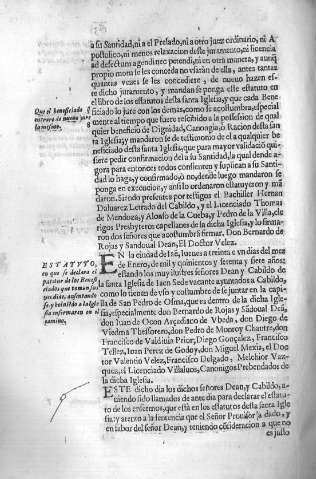 a su Santidad, ni a el Prelado, ni a otro juez ordinario, ni A
postolico, ni menos relaxacion deste juramento, ni licencia
ad defectum agendi nec petendi, ni en otra manera, y aunq̃
proprio motu se les conceda no vsarán de ella, antes tantas
quantas vezes se les concediere, de nuevo hazen es-
te dicho juramento, y mandan se ponga este estatuto en
el libro de los estatutos desta santa Iglesia, y que cada Bene
ficiado lo jure con los demas, como se acostumbra, especial
mente al tiempo que fuere recebido a la possession de qual
quier beneficio de Dignidad, Canongia, ò Racion desta san
ta Iglesia, y mandaron se de testimonio de el a qualquier be
neficiado desta santa Iglesia, que para mayor validació qui-
siere pedir confirmacion del a su Santidad, la qual dende a-
gora para entonces todos consienten y suplican a su Santi-
dad lo haga, y confirmado, ò no, desde luego mandaron se
ponga en execucion, y ansi lo ordenaron estatuyeron y mã
daron. Siendo presentes por testigos el Bachiller Hernan
Daluarez Letrado del Cabildo, y el Licenciado Thomas
de Mendoza, y Alonso de la Cueba, y Pedro de la Villa, cle
rigos Presbyteros capellanes de la dicha Iglesia, y lo firma-
ron dos señores que acostumbrã firmar. Don Bernardo de
Rojas y Sandoual Dean, El Doctor Velez.
Que el beneficiado
entrare de nuevo jure
lo mismo.
ESTATVTO,
en que se declara el
EN la ciudad de Iaẽ, Iueues a treinta y un dias del mes
de Enero, de mil y quinientos y setenta y siete años;
estando los muy ilustres señores Dean y Cabildo de
la santa Iglesia de Iaen Sede vacante ayuntados a Cabildo,
como lo tienen de vso y costumbre de se juntar en la capi-
lla de San Pedro de Osma, que es dentro de la dicha Igle-
sia, especialmente don Bernardo de Rojas y Sãdoual Deã,
don Iuan de Ocon Arcediano de Vbeda, don Diego de
Viedma Thesorero, don Pedro de Monroy Chantre, don
Francisco de Valdiuia Prior, Diego Gonçalez, Francisco
Tellez, Ioan Perez de Godoy, don Miguel Mexia, el Doc
tor Valencia Velez, Francisco Delgado, Melchior Vaz-
quez, el Licenciado Villaluos, Canonigos Prebendados de
la dicha Iglesia.
ESTE dicho dia los dichos señores Dean, y Cabildo, a-
viendo sido llamados de ante dia para declarar el estatu-
to de los enfermos, que està en los estatutos desta santa Igle
sia, y atento a la sentencia que el Señor Prouisor a dado, y
en fabor del señor Dean, y teniendo cõsideracion a que no
es justo